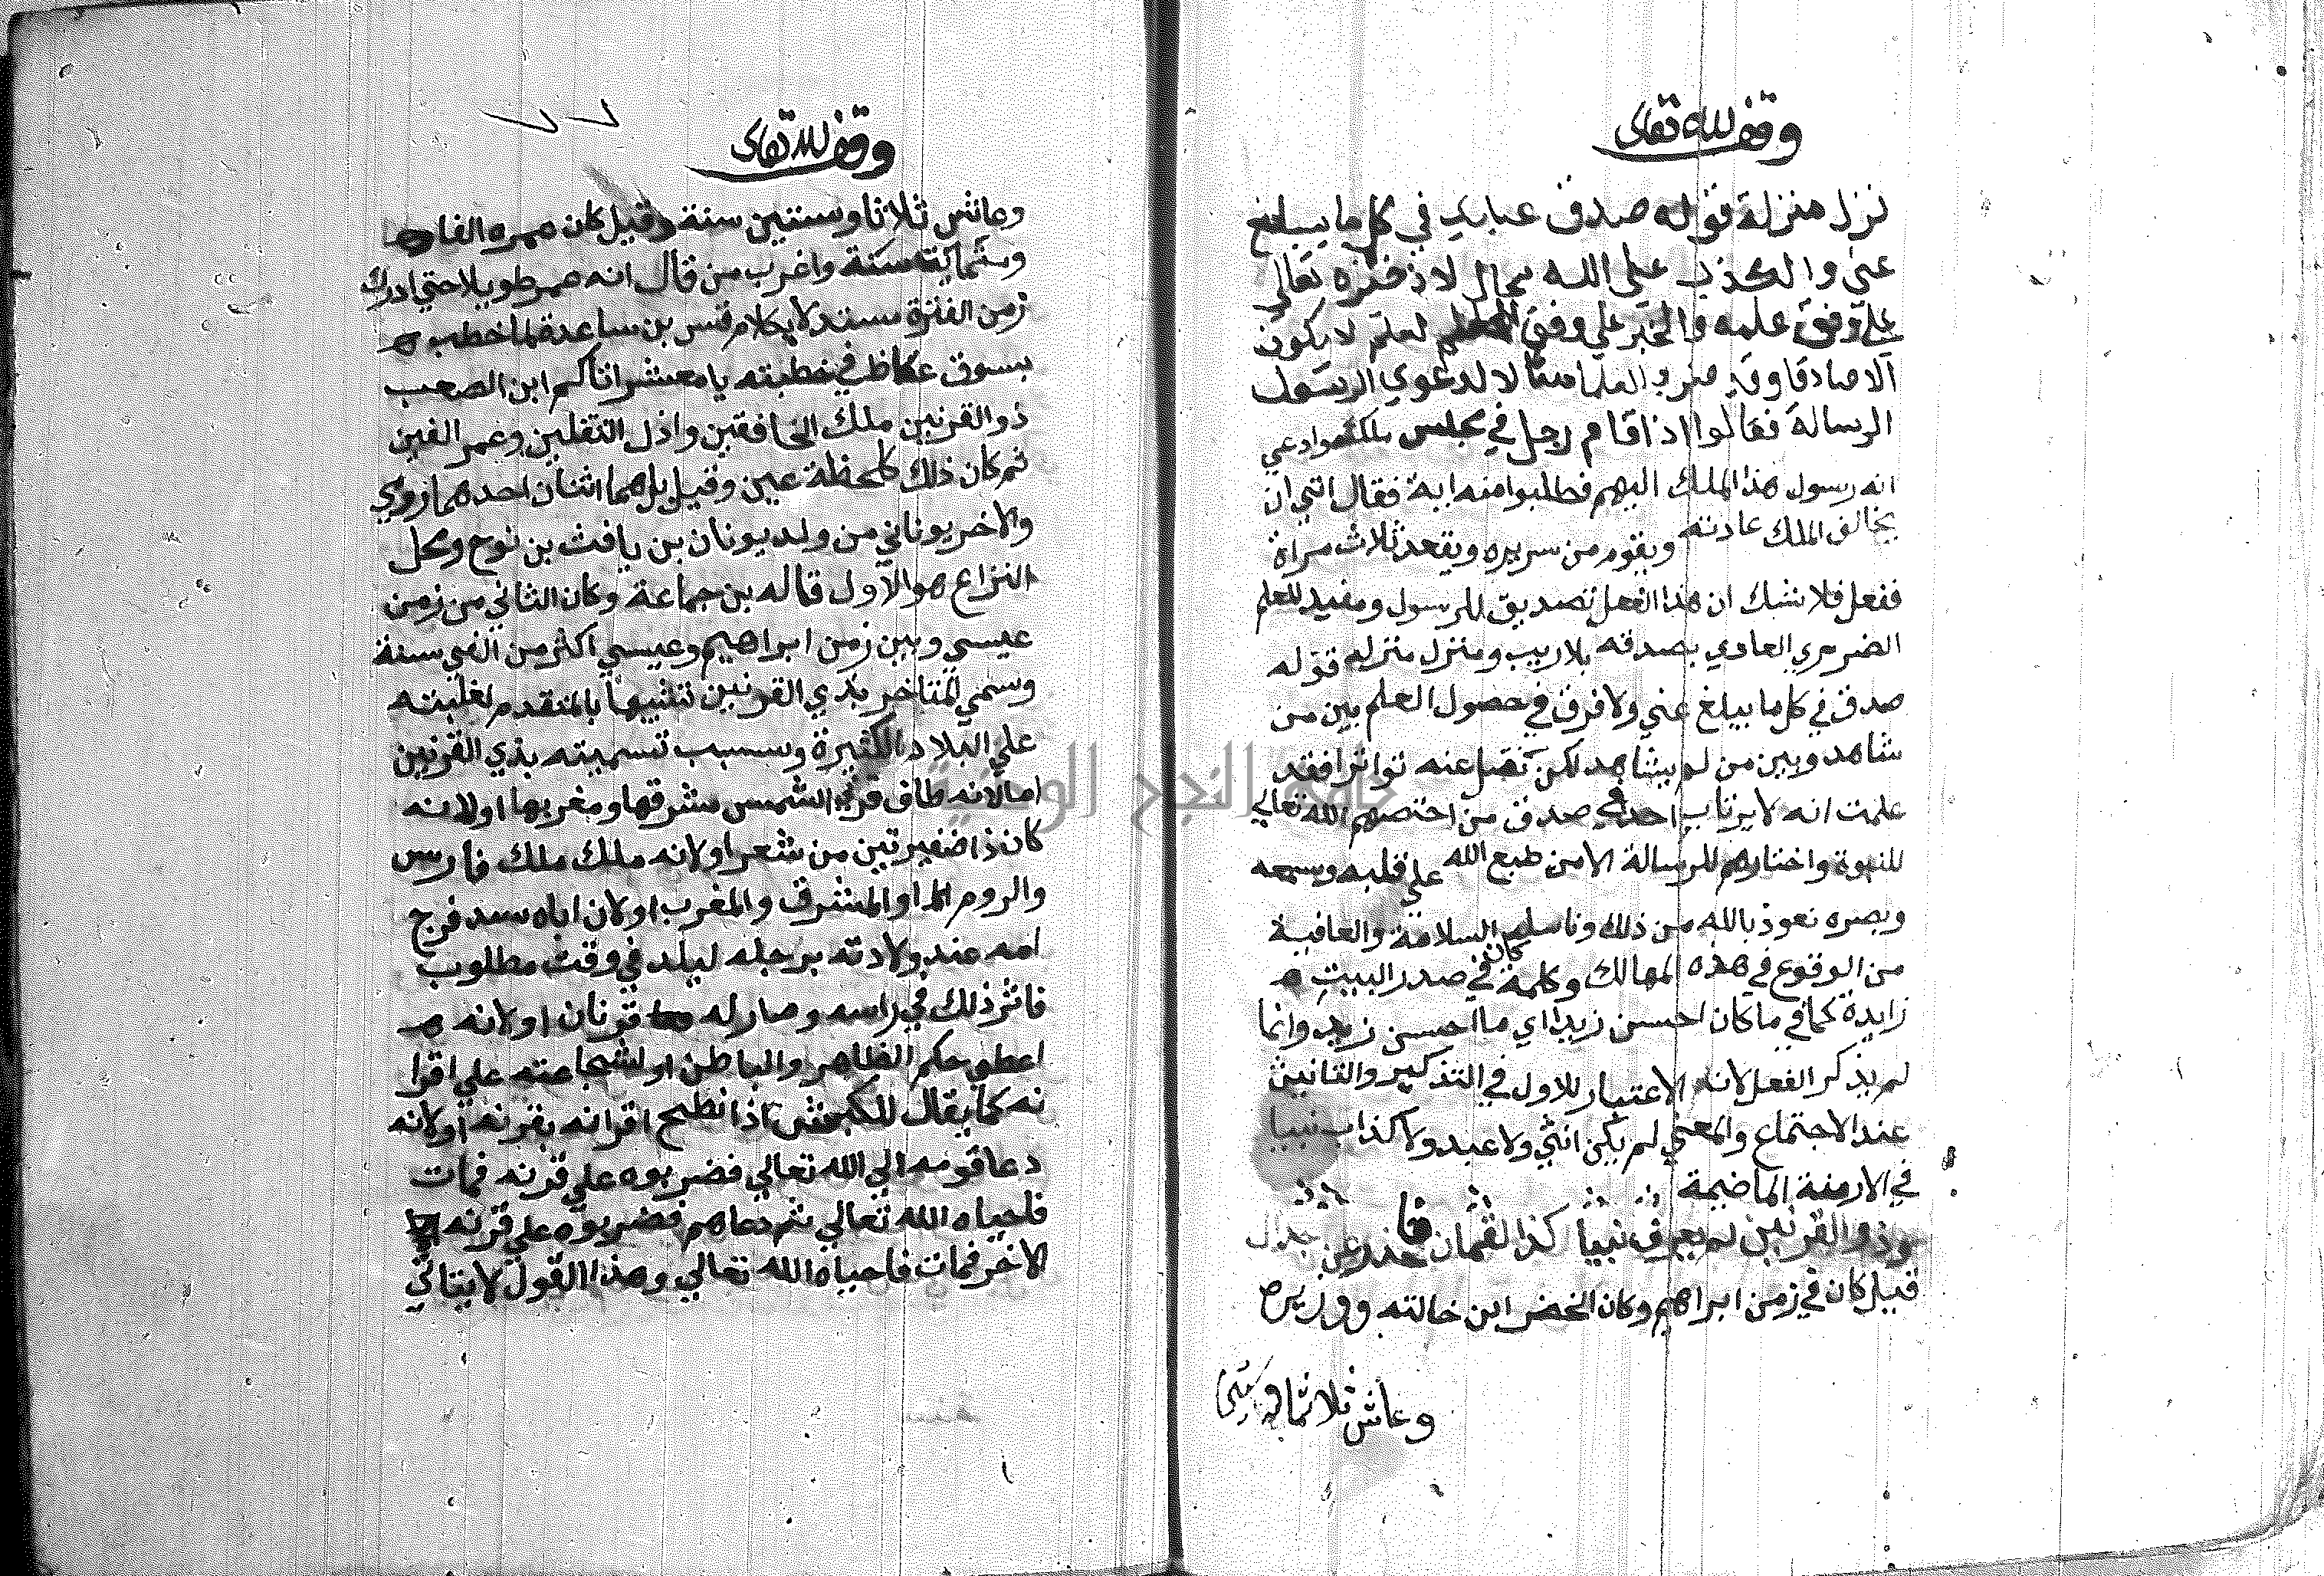 وقف لله تعالى
نزل منزلة قوله صدق عبدي في كل ما يبلغ
عني والكذب على الله محال لان خبره تعالى
على وفق علمه والخبر على وفق العلم لا يكون
الا صادقا وقد ضرب العلما مثالا لدعوي الرسول
الرسالة فقالوا اذا قام رجل في مجلس ملك وادعي
انه رسول هذا الملك اليهم فطالبوا منه اية فقال ايتي ان
يخالف الملك عادته ويقوم من سريره ويقعد ثلاث مراة
ففعل فلا شك ان هذا الفعل تصديق للرسول ومفيد للعلم
الضروري العادي بصدقه بلا ريب ومنزل منزلة قوله
صدق في كل ما يبلغ عني ولا فرق في حصول العلم بين من
شاهد وبين من لم يشاهد لكن نقل عنه تواترا فقد
علمت انه لا يرتاب احد في صدق من اختصهم الله تعالي
للنبوة واختارهم للرسالة الا من طبع الله على قلبه وسمعه
وبصره نعوذ بالله من ذلك ونا سله السلامة والعافية
من الوقوع في هذه المهالك وكلمة كان في صدر البيت
زايدة كما في ما كان احسن زيدا اي ما احسن زيد وانما
لم يذكر الفعل لانه الاعتبار للاول في التذكير والتانيث
عند الاجتماع والمعني لم يكن انثي ولا عبد ولا كذاب نبيا
في الازمنة الماضية
وذو القرنين لم يعرف نبيا كذا لقمان فاحذر عن جدال
قيل كان في زمن ابراهيم وكان الخضر ابن خالته ووزيره
وعاش ثلاثا وستين
وقف لله تعالى
وعاش ثلاثا وستين سنة وقيل كان عمره الفا
وستمائة سنة واغرب من قال انه عمر طويلا حتي ادرك
زمن الفترة مستدلا بكلام قس بن ساعدة لما خطب
بسوق عكاظ في خطبته يا معشر اياكم ابن الصعب
ذو القرنين ملك الخافقين واذل الثقلين وعمر الفين
ثم كان ذلك كلحظة عين وقيل بل هما اثنان احدهما رومي
والاخر يوناني من ولد يونان بن يافث بن نوح ومحل
النزاع هو الاول قاله بن جماعة وكان الثاني من زمن
عيسي وبين زمن ابراهيم وعيسي اكثر من الفي سنة
وسمي المتاخر بذي القرنين تشبيها بالمتقدم لغلبته
علي البلاد الكثيرة وسبب تسميته بذي القرنين
اما لانه طاف قرني الشمس مشرقها ومغربها او لانه
كان ذا ضفيرتين من شعر او لانه ملك ملك فارس
والروم او المشرق والمغرب او لان اباه سد فرج
امه عند ولادته برجله ليلد في وقت مطلوب
فاثر ذلك في راسه وصار له قرنان او لانه
اعطي حكم الظاهر والباطن او لشجاعته علي اقرا
نه كما يقال للكبش اذا نطح اقرانه بقرنه او لانه
دعا قومه الي الله تعالي فضربوه علي قرنه فمات
فاحياه الله تعالي ثم دعاهم فضربوه علي قرنه
الاخر فمات فاحياه الله تعالي وهذا القول لا يتاتي